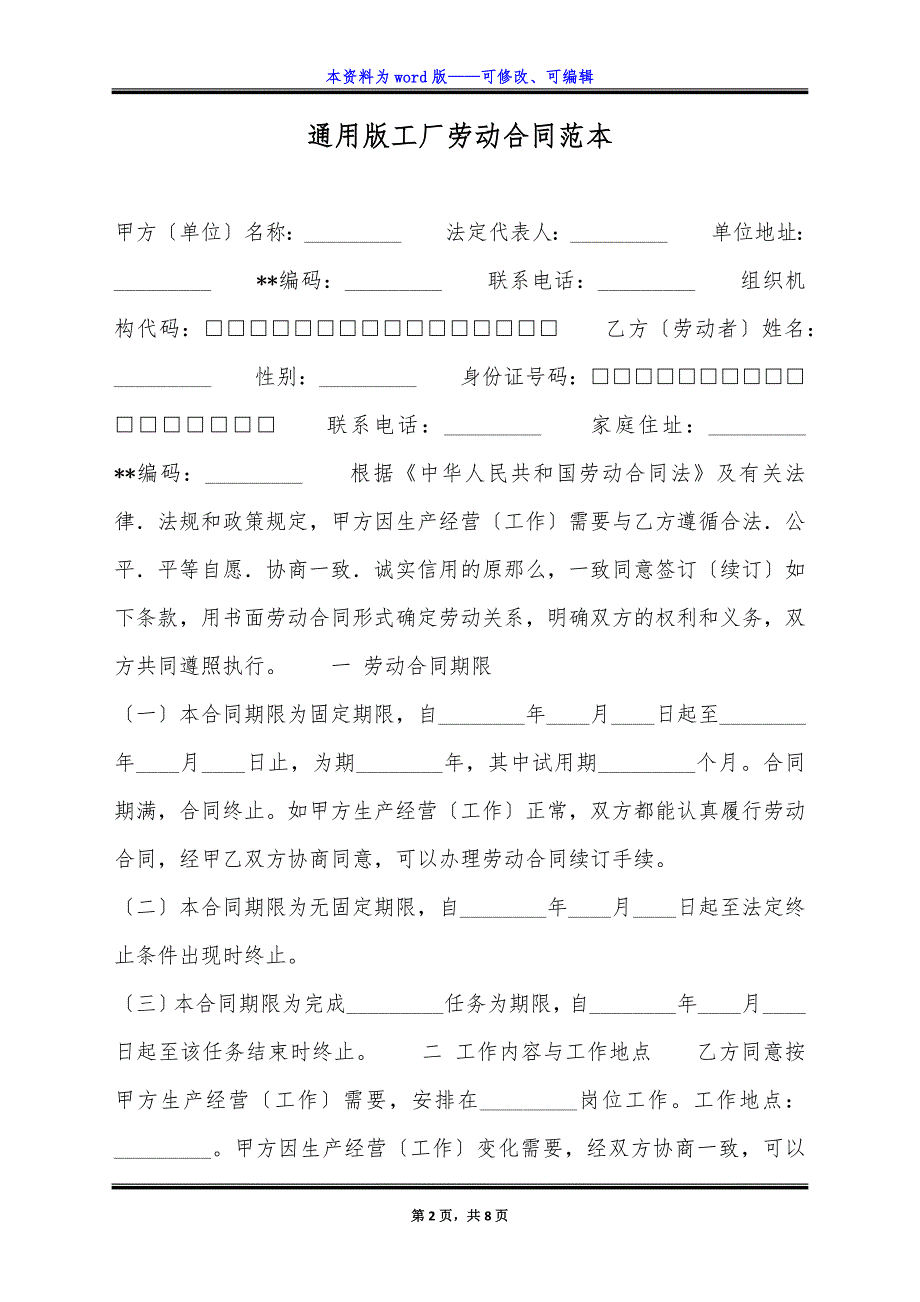 本资料为 word 版——可修改、可编辑
通用版工厂劳动合同范本
甲方〔单位〕名称：_________ 法定代表人：_________ 单位地址：
_________ **编码：_________ 联系电话：_________ 组织机
构代码：□□□□□□□□□□□□□□□□ 乙方〔劳动者〕姓名：
_________ 性别：_________ 身份证号码：□□□□□□□□□□
□□□□□□□ 联系电话：_________ 家庭住址：_________
**编码：_________ 根据《中华人民共和国劳动合同法》及有关法
律．法规和政策规定，甲方因生产经营〔工作〕需要与乙方遵循合法．公
平．平等自愿．协商一致．诚实信用的原那么，一致同意签订〔续订〕如
下条款，用书面劳动合同形式确定劳动关系，明确双方的权利和义务，双
方共同遵照执行。 一 劳动合同期限
〔一〕本合同期限为固定期限，自________年____月____日起至________
年____月____日止，为期________年，其中试用期_________个月。合同
期满，合同终止。如甲方生产经营〔工作〕正常，双方都能认真履行劳动
合同，经甲乙双方协商同意，可以办理劳动合同续订手续。
〔二〕本合同期限为无固定期限，自________年____月____日起至法定终
止条件出现时终止。
〔三〕本合同期限为完成_________任务为期限，自________年____月____
日起至该任务结束时终止。 二 工作内容与工作地点 乙方同意按
甲方生产经营〔工作〕需要，安排在_________岗位工作。工作地点：
_________。甲方因生产经营〔工作〕变化需要，经双方协商一致，可以
第 2 页，共 8 页